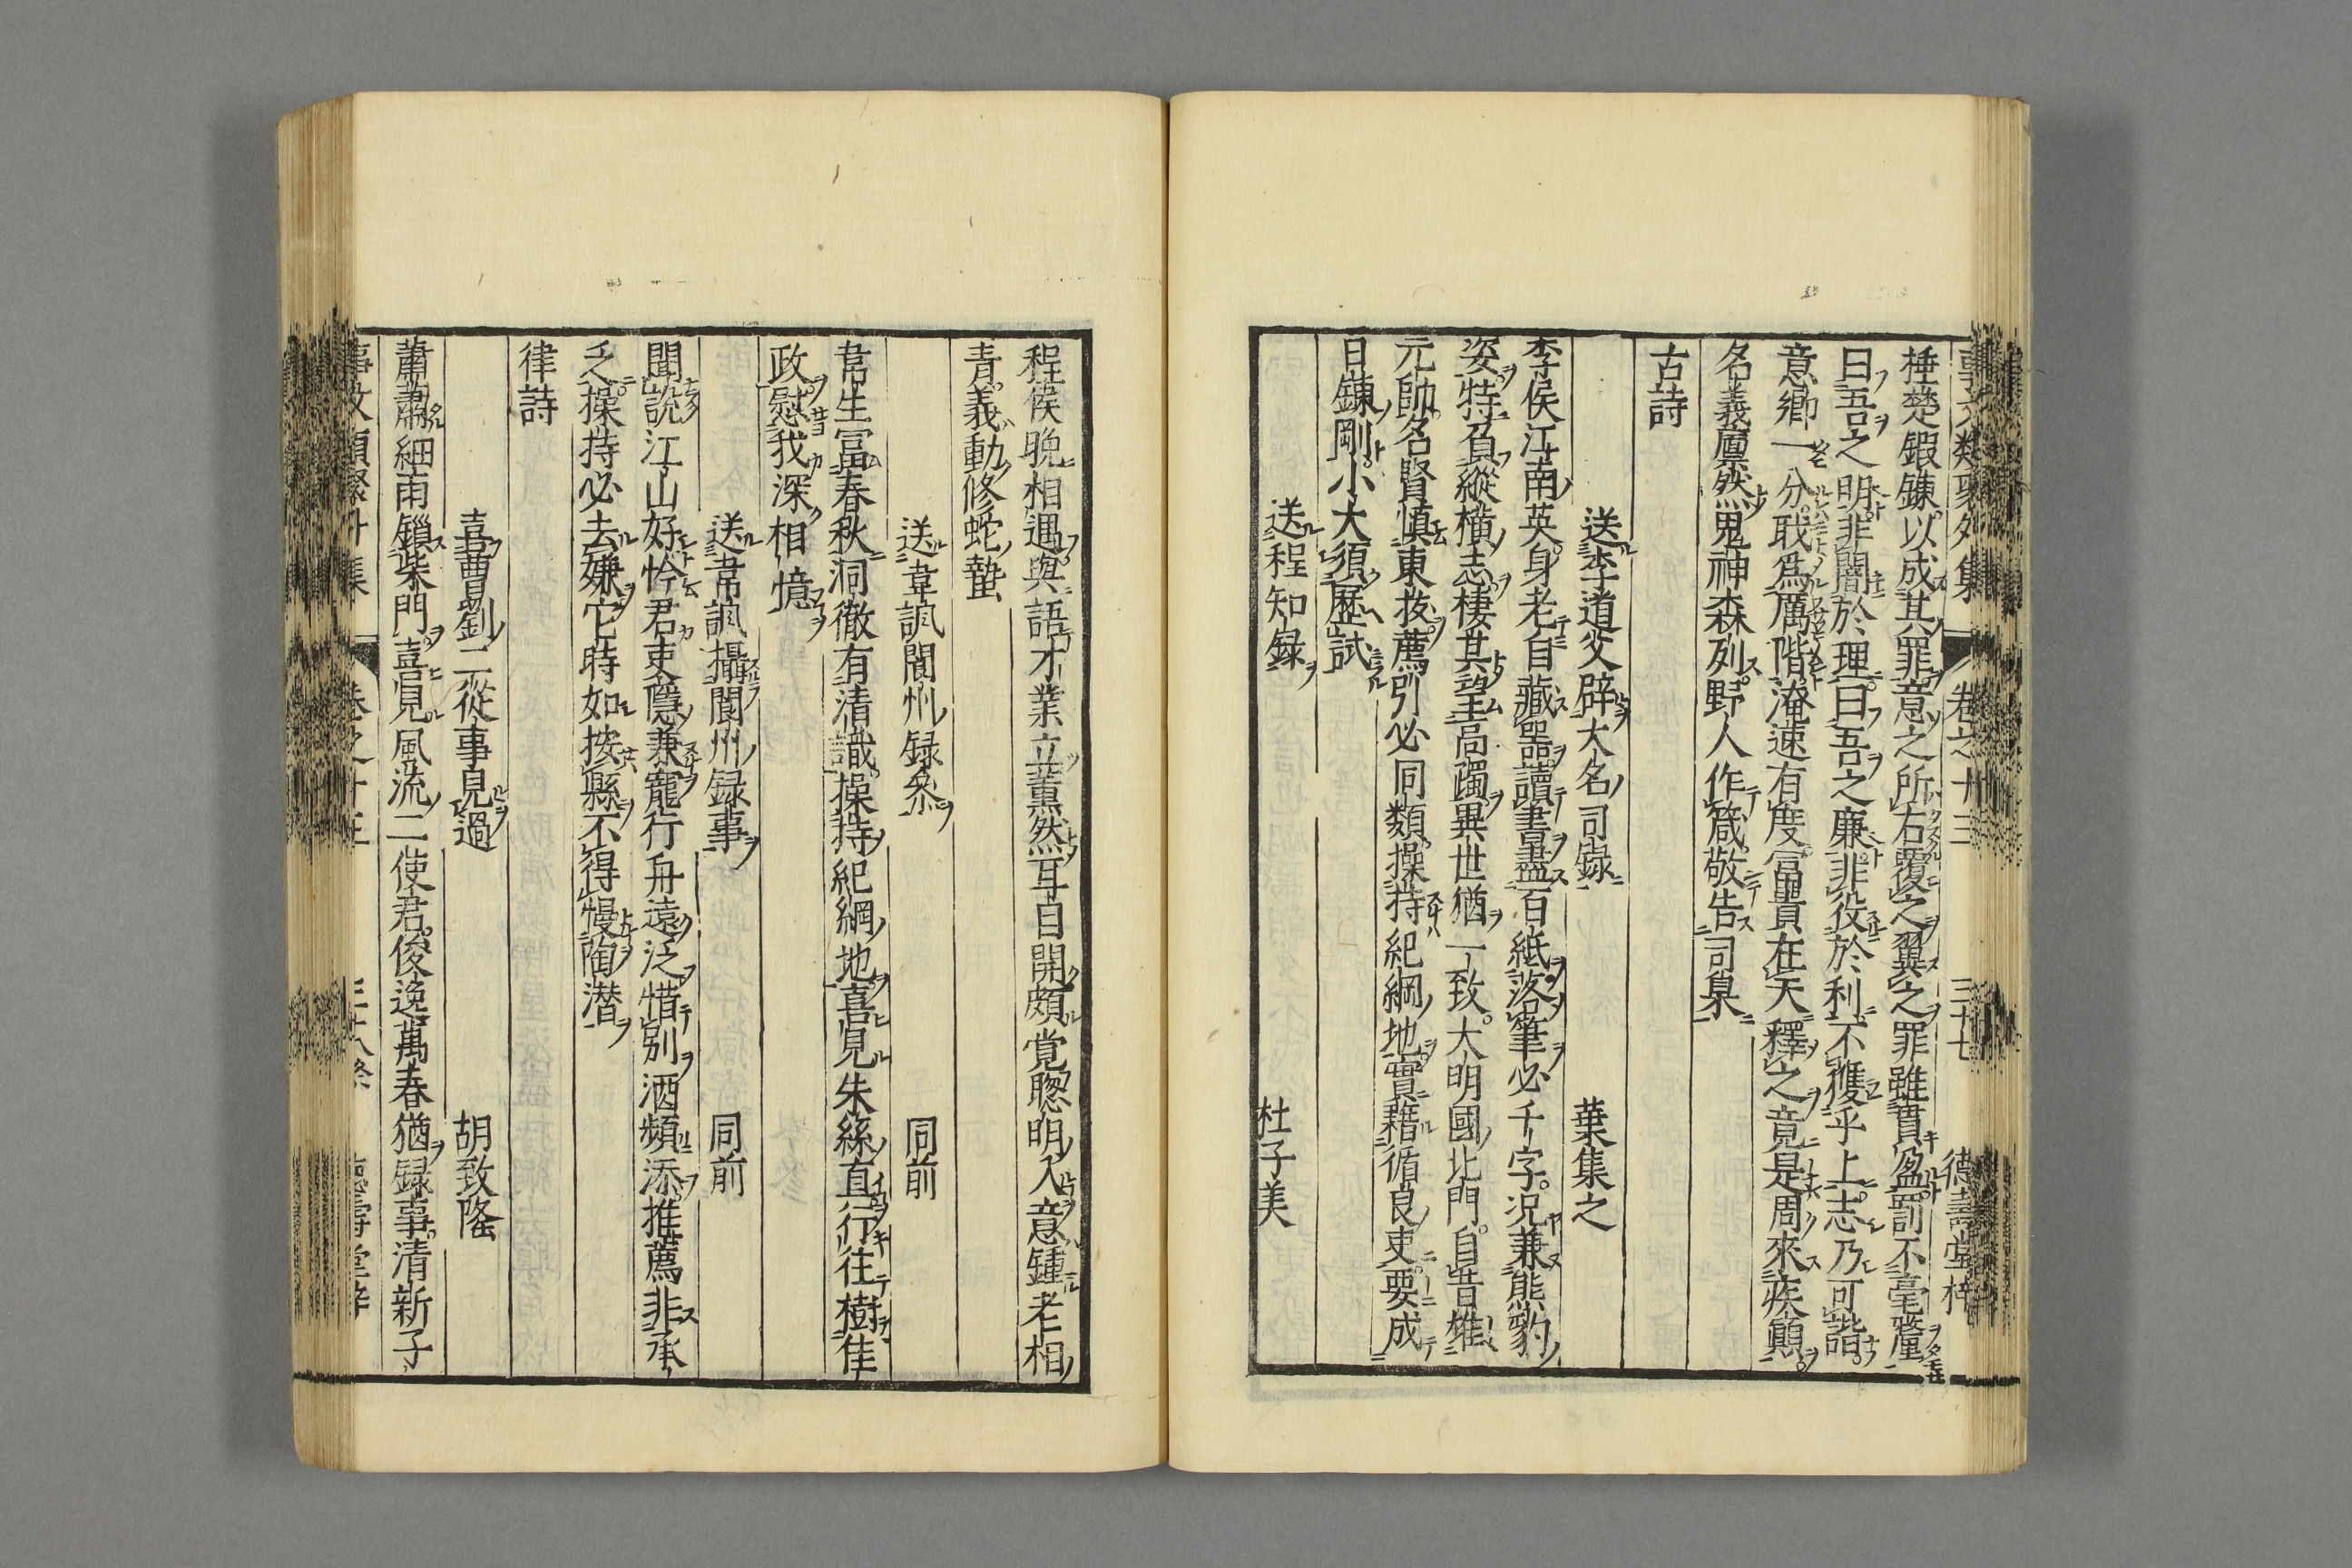 事文類聚外集 卷之十三 三十七 德壽堂梓
捶楚鍜鍊以成其罪意之所右覆之翼之罪雖貫盈罰不毫釐
曰吾之明非闇於理曰吾之廉非役於利不獲乎上志乃可諧
意鄉一分戝爲厲階淹速有度冨貴在天釋之竟是周來疾顚
名義凛然鬼神森列野人作箴敬告司臬
古詩
送李道父辟大名司録 葉集之
李侯江南英身老自藏噐讀書盡百紙落筆必千字况兼熊豹
姿特負縱橫志棲其望高躅異世猶一致大明國北門自昔雄
元帥名賢慎東抜薦引必同類操持紀綱地實藉循良吏要成
百鍊剛小大須歷試
送程知録 杜子美
程侯晩相遇與語才業立薫然耳目開頗覚聦明入意鍾老相
青義動修蛇蟄
送韋諷閬州録叅 同前
韋生冨春秋洞徹有清識操持紀綱地喜見朱絲直行往樹佳
政慰我深相憶
送韋諷攝閬州録事 同前
聞説江山好怜君吏隱兼寵行舟遠泛惜別酒頻添推薦非承
乏操持必去嫌它時如按縣不得慢陶潜
律詩
喜曹易釗二從事見過 胡致隆
蕭蕭細雨鎻柴門喜見風流二使君俊逸萬春猶録事清新子